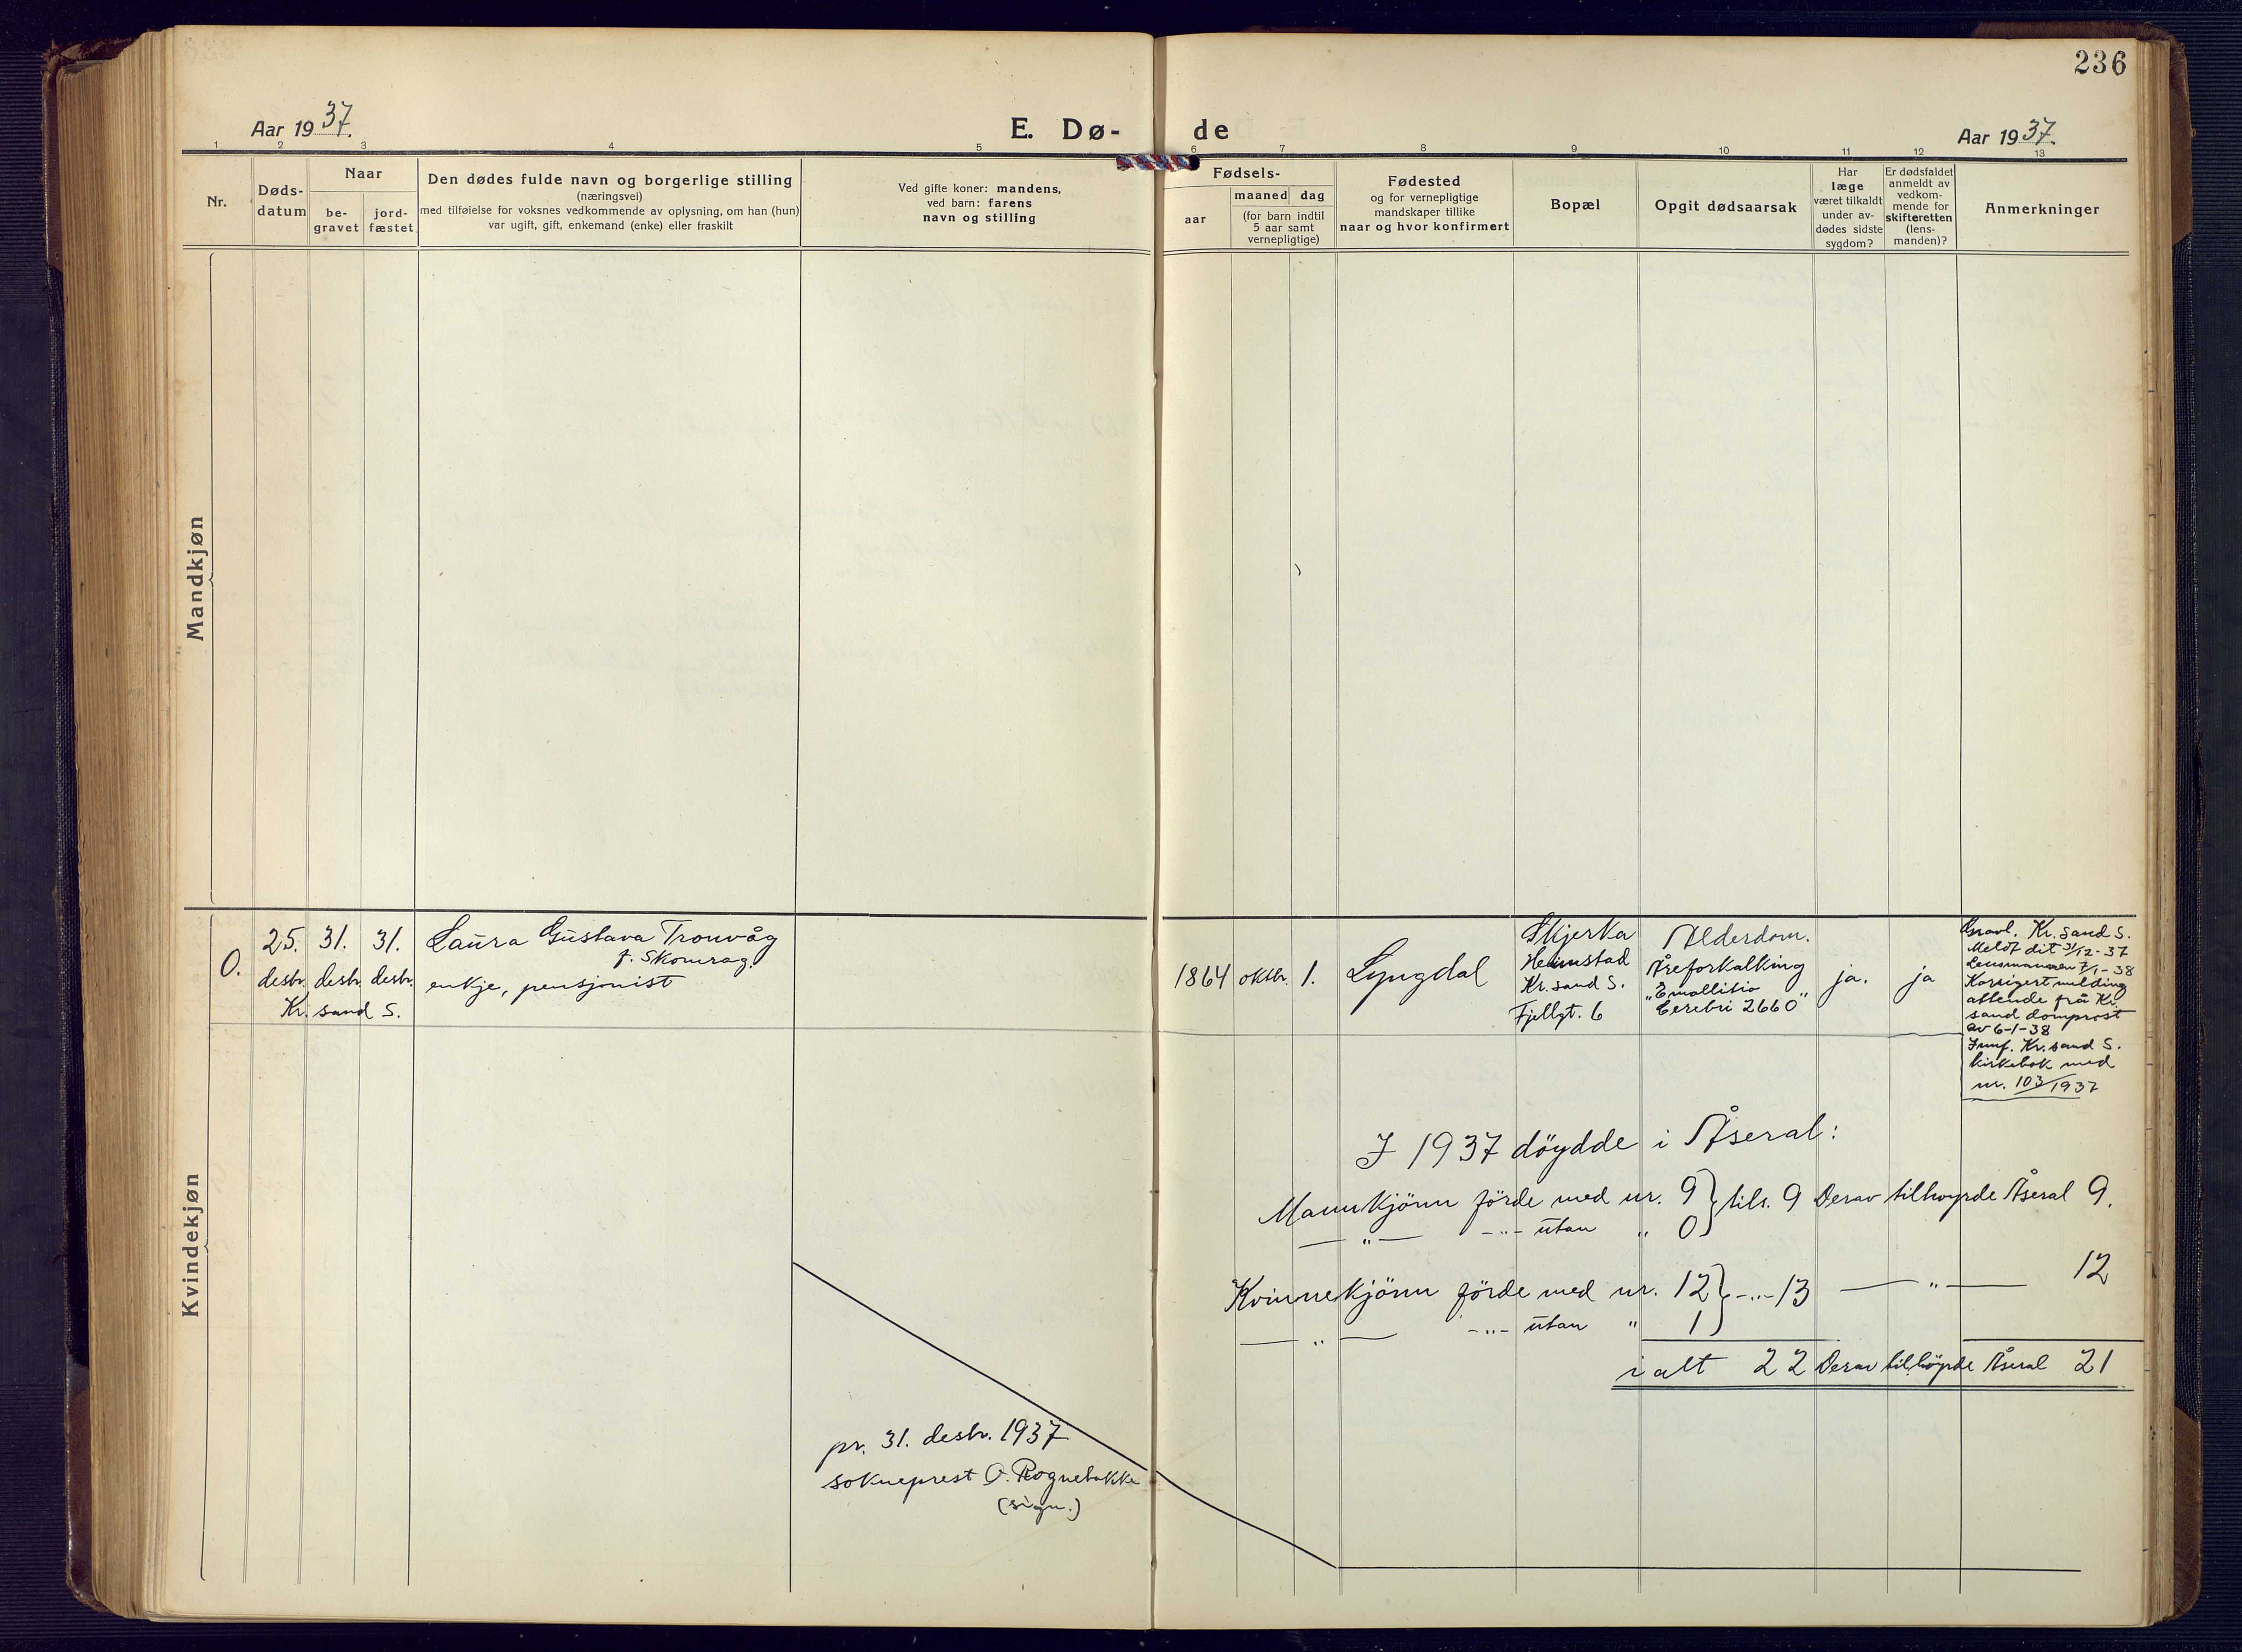 236
Aar 1937.
E. Dø-
de
Aar 1937.
1 2 3 4 5 6 7 8 9 10 11 12 13
Nr.
Døds-
datum
Naar
be-
gravet
jord-
fæstet
Den dødes fulde navn og borgerlige stilling
(næringsvei)
med tilføielse for voksnes vedkommende av oplysning, om han (hun)
var ugift, gift, enkemand (enke) eller fraskilt
Ved gifte koner: mandens,
ved barn: farens
navn og stilling
Fødsels-
aar
maaned dag
(for barn indtil
5 aar samt
vernepligtige)
Fødested
og for vernepligtige
mandskaper tillike
naar og hvor konfirmert
Bopæl
Opgit dødsaarsak
Har
læge
været tilkaldt
under av-
dødes sidste
sygdom?
Er dødsfaldet
anmeldt av
vedkom-
mende for
skifteretten
(lens-
manden)?
Anmerkninger
Mandkjøn
Kvindekjøn
0.
25.
desbr.
31.
desbr.
31.
desbr.
Kr. sand S.
Laura Gustava Tronvåg
f. Skomrag.
enkje, pensjonist
1864
oktbr.
1.
Lyngdal
Skjerka
Heimstad
Kr. sand S.
Fjellgt. 6
Alderdom.
Åreforkalking
"Emollitio
Cerebri 2660"
ja.
ja
Gravl. Kr. sand S.
Meldt dit 31/12-37
Lensmannen 7/1-38
Korrigert melding
attende frå Kr.
sand domprost
av 6-1-38
Innf. Kr. sand S.
kirkebok med
nr. 103/1937
I 1937 döydde i Åseral:
Mannkjönn förde med nr. 9 } tils. 9 Derav tilhøyrde Åseral 9.
— " — -"- utan " 0
Kvinnekjönn förde med nr. 12 } -"- 13 — " — 12
— " — -"- utan " 1
i alt 22 Derav tilhöyrde Åseral 21
pr. 31. desbr. 1937
sokneprest O. Rognebakke
(sign.)